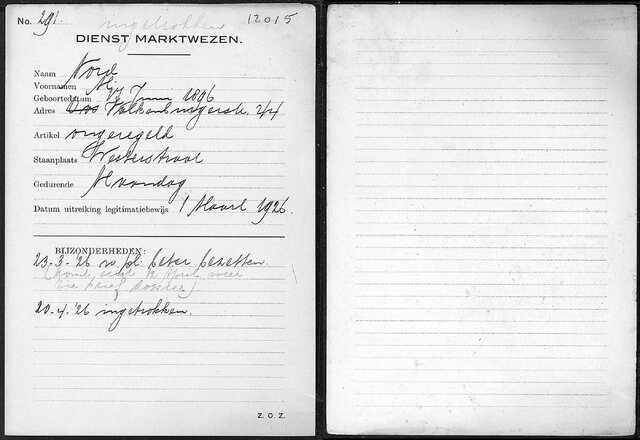 No. 291. ingetrokken 12015
DIENST MARKTWEZEN.
Naam Nord
Voornamen M.
Geboortedatum Juni 1896
Adres Valkenburgerstr. 244
Artikel ongeregeld
Staanplaats Westerstraat
Gedurende Maandag
Datum uitreiking legitimatiebewijs 1 Maart 1926.
BIJZONDERHEDEN:
23-3-'26 pl. beter bezetten.
(komt eerst weer
zie brief dossier)
20-4-'26 ingetrokken.
Z. O. Z.